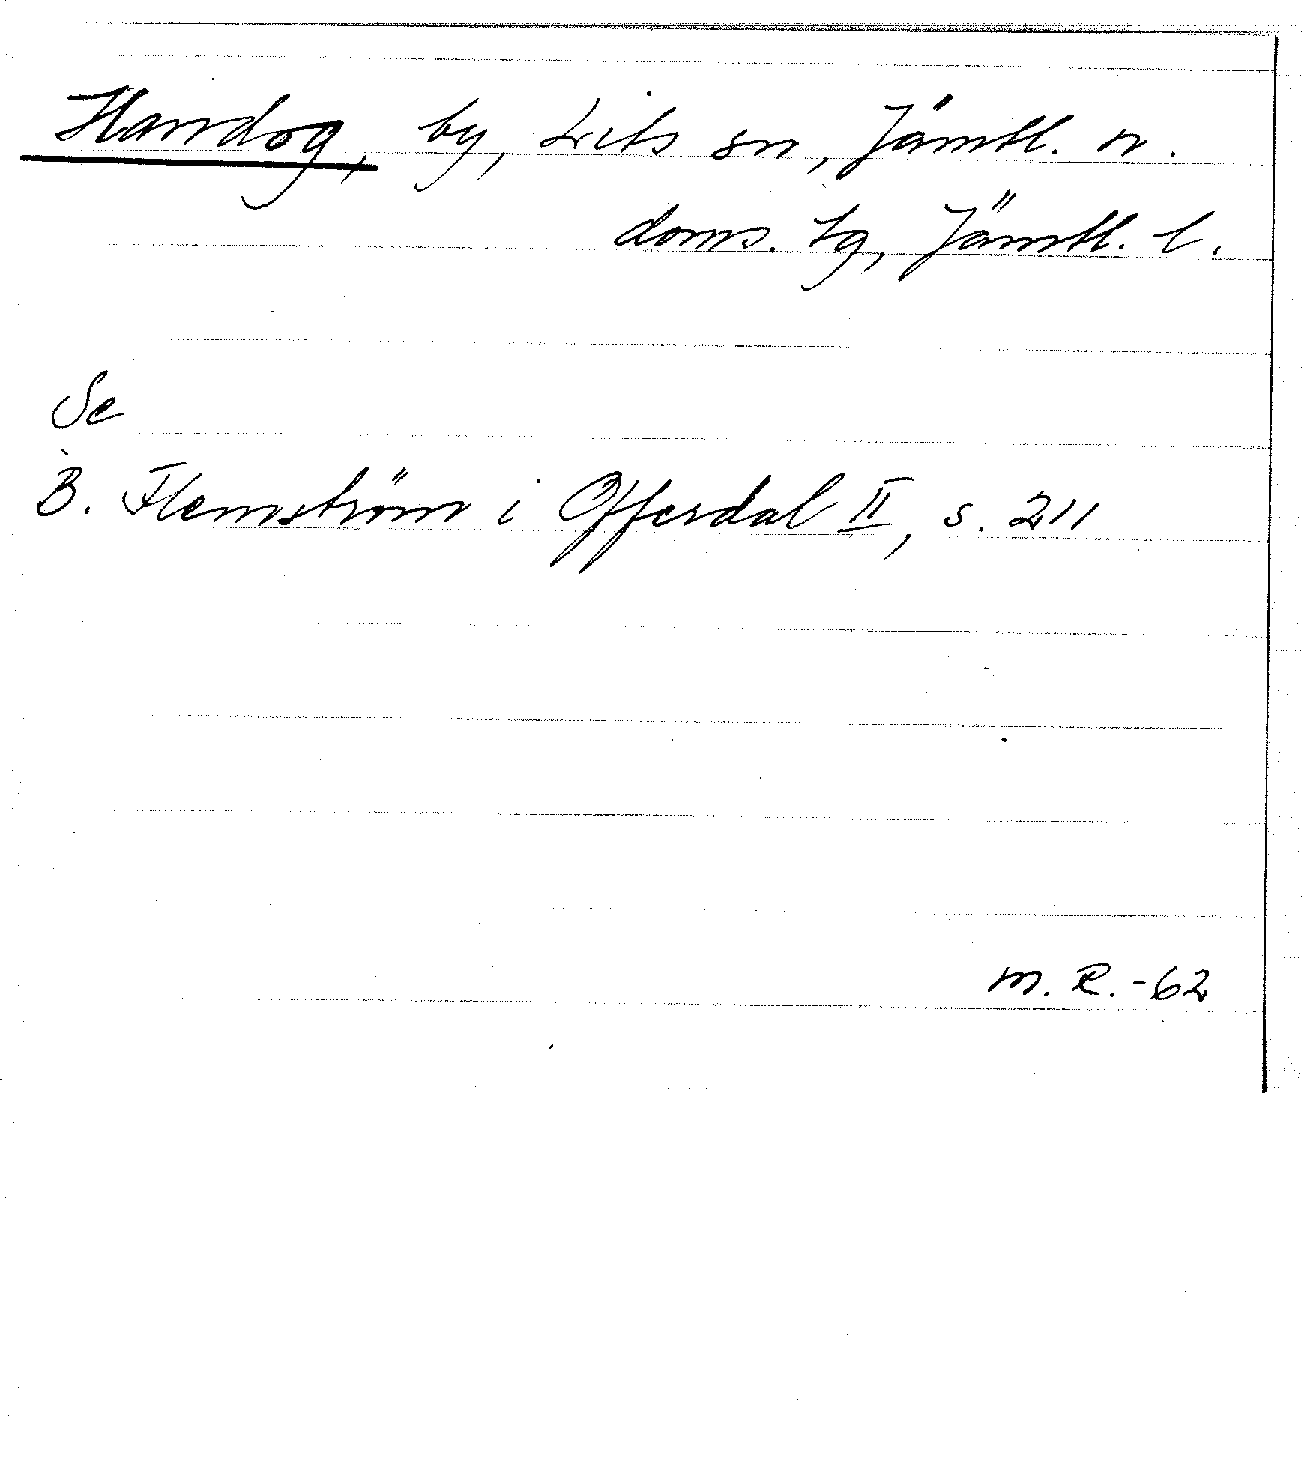 Handog, by, Lits sn, Jämtl. n.
doms. tg, Jämtl. l.
Se
B. Flemström i Offerdal II, s. 211
M. R. -62